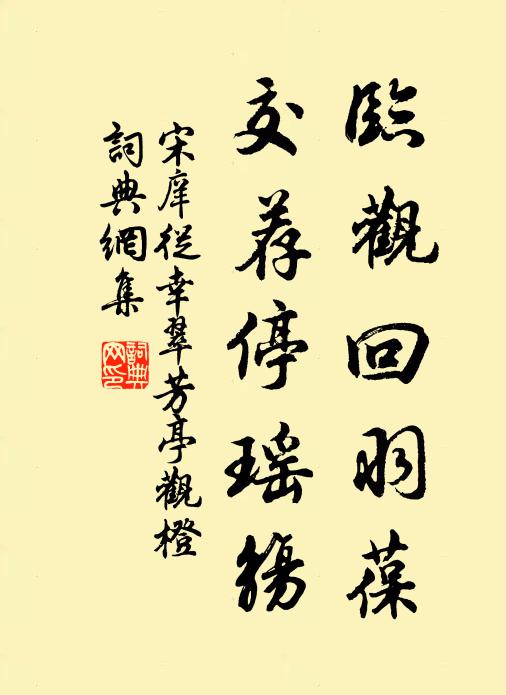 臨觀回羽葆
交荐停瑶觴
宋庠從幸翠芳亭觀橙
詞典網集
詞典网印